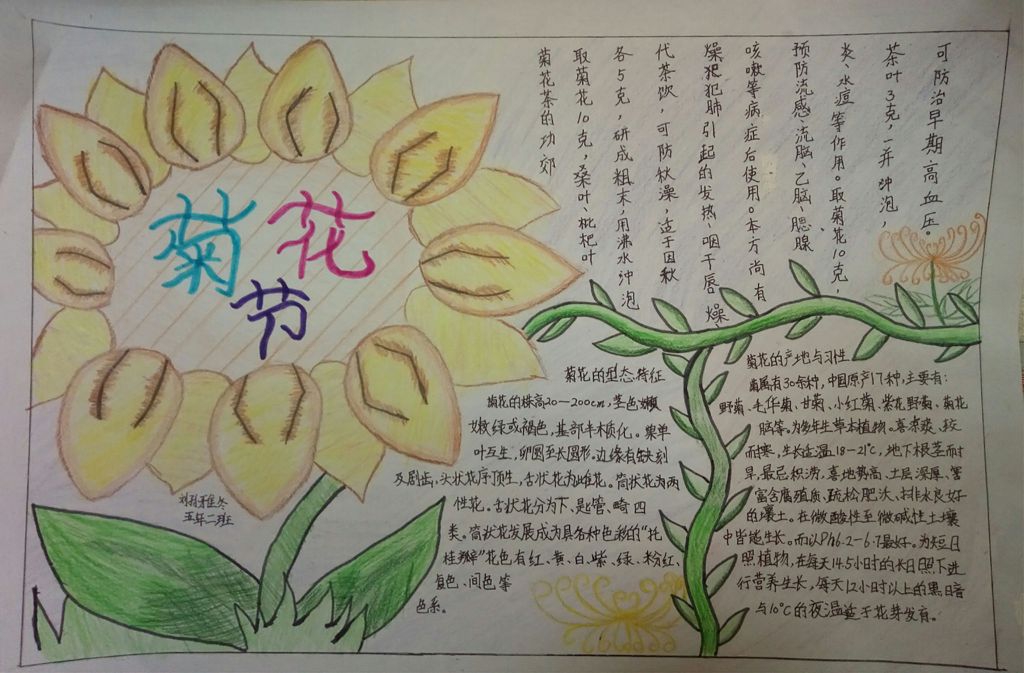 菊花节
菊花茶的功郊
取菊花10克,桑叶、枇杷叶
各5克,研成粗末,用沸水冲泡
代茶饮,可防秋澡,适于因秋
燥犯肺引起的发热、咽干唇燥、
咳嗽等病症后使用。本方尚有
预防流感、流脑、乙脑、腮腺
炎、水痘等作用。取菊花10克,
茶叶3克,一并冲泡,
可防治早期高血压。
菊花的型态特征
菊花的株高20—200cm,茎色嫩
嫩绿或褐色,基部半木质化。单
叶互生,卵圆至长圆形,边缘有缺刻
及剧齿,头状花序顶生,舌状花为雌花。筒状花为两
性花。舌状花分为下、匙、管、畸四
类。筒状花发展成为具各种色彩的“托
桂瓣”花色有红、黄、白、紫、绿、粉红、
复色、间色等
色系。
菊花的产地与习性
菊属有30余种,中国原产17种,主要有:
野菊、毛华菊、甘菊、小红菊、紫花野菊、菊花
脑等。为多年生草本植物。喜凉爽、较
耐寒,生长适温18—21℃,地下根茎耐
旱,最忌积涝,喜地势高、土层深厚、富
富含腐殖质、疏松肥沃、排水良好
的壤土。在微酸性至微碱性土壤
中皆能生长。而以PH6.2—6.7最好。为短日
照植物,在每天14.5小时的长日照下进
行营养生长,每天12小时以上的黑暗
与10℃的夜温适于花芽发育。
五年二班